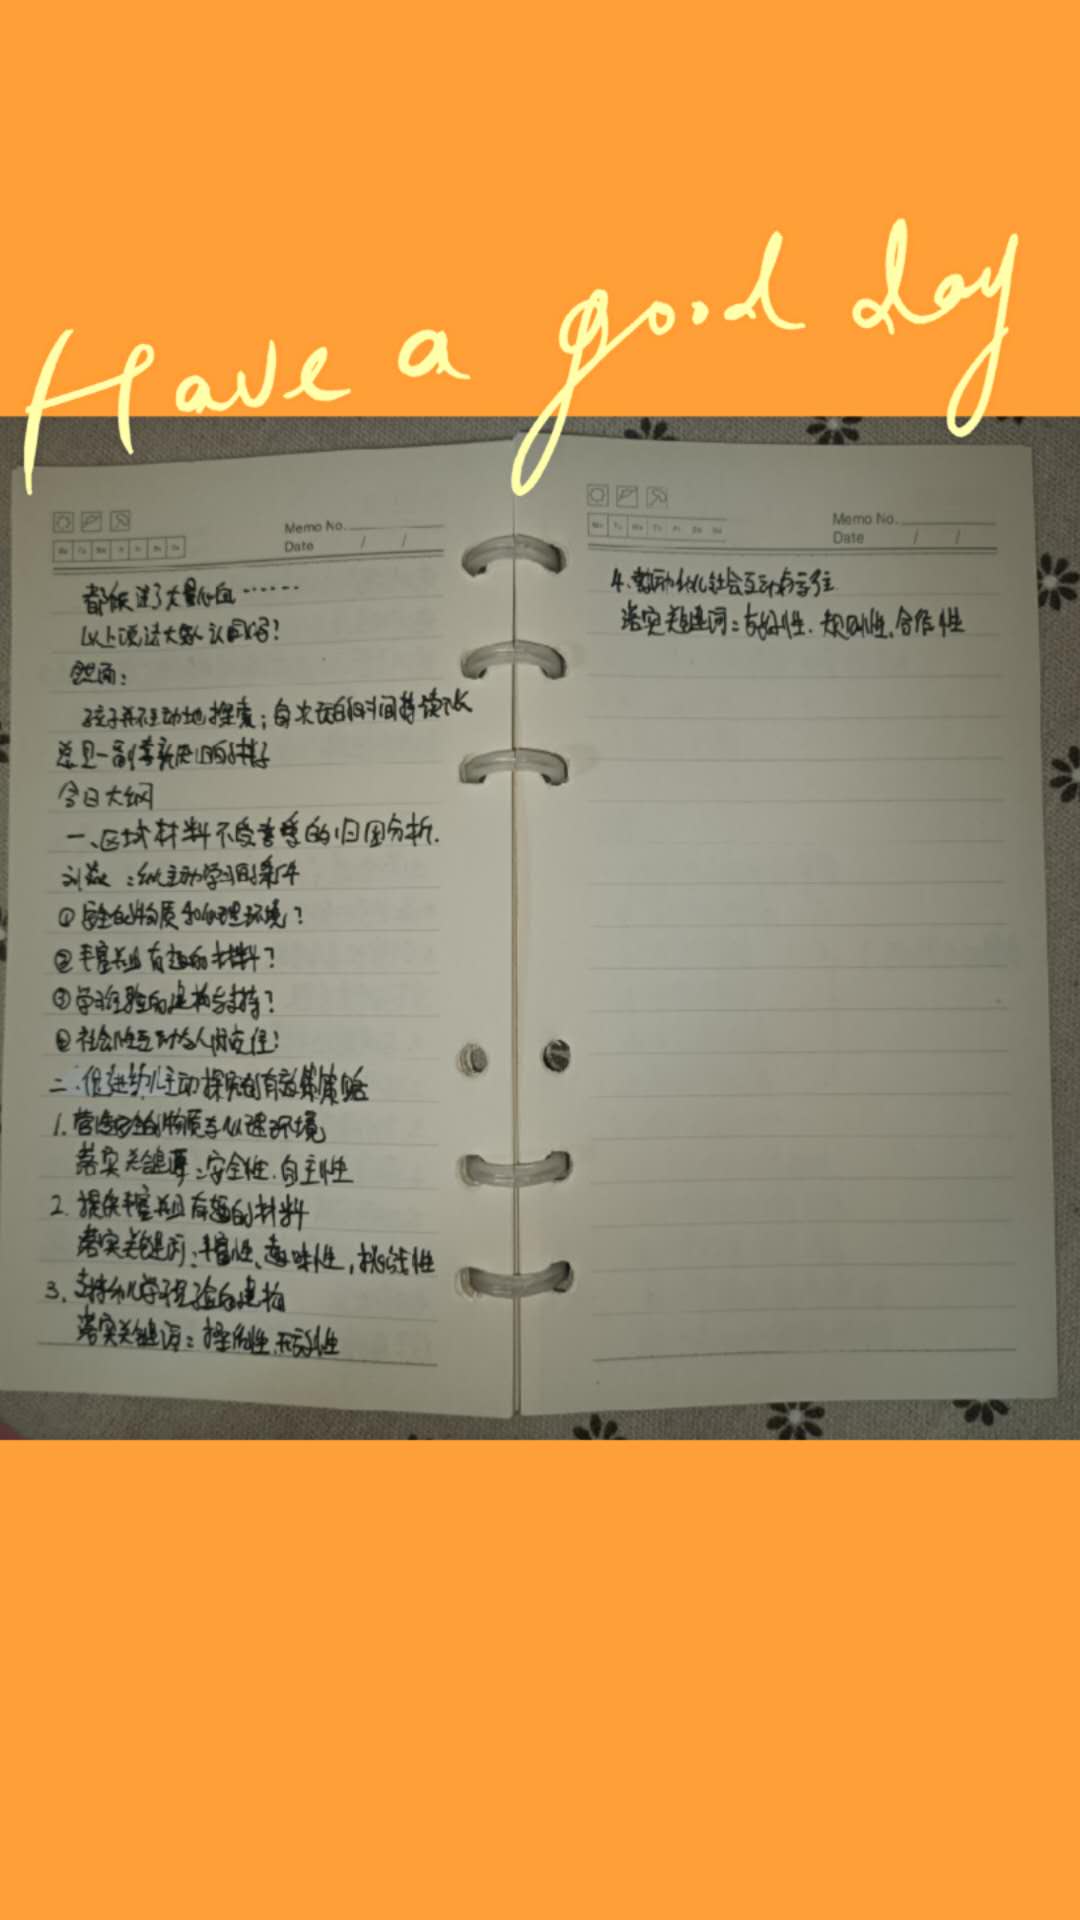 Have a good day
Memo No.
Date / /
都倾进了大量心血……
以上说法大家认同吗?
然而:
孩子并不主动地探索;每次玩的时间持续不长
总是一副喜新厌旧的样子
今日大纲
一、区域材料不受喜爱的归因分析.
:幼儿主动学习的条件
①安全的物质和心理环境?
②丰富并且有趣的材料?
③学习经验的建构与支持?
④社会性互动与人际
二、促进幼儿主动探究的有效策策略
1.营造安全的物质与心理环境
落实关键 :安全性.自主性
2.提供丰富并且有趣的材料
落实关键词:丰富性、趣味性,挑战性
3.支持幼儿学习经验的建构
落实关键词:操作性.
Memo No.
Date / /
4.幼儿社会互动与
落实关键词:友好性.规则性.合作性